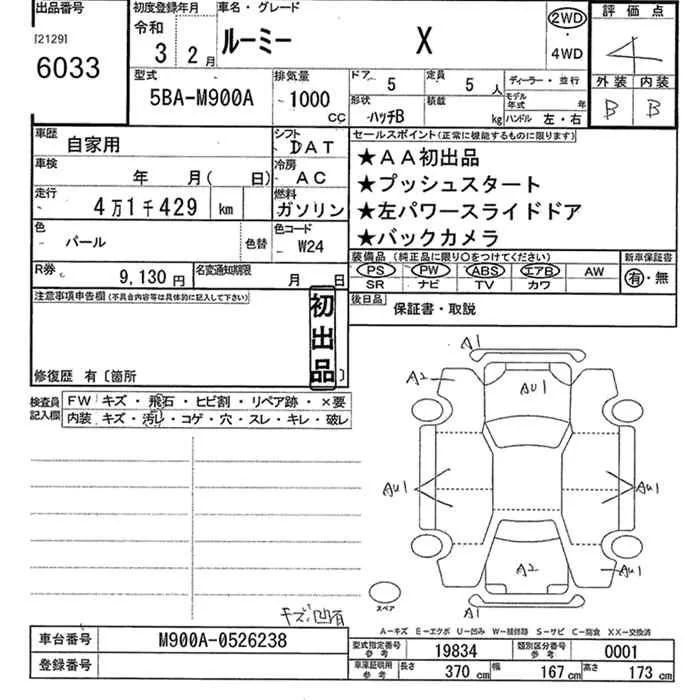 出品番号 初度登録年月 車名・グレード 評価点
[2129] 令和 ルーミー X 2WD 4
6033 3 2月 ・ 4WD
外装 内装
B B
型式 排気量 ドア 5 定員 5人 ディーラー・並行
5BA-M900A 1000cc 形状 ハッチB 積載 kg モデル年式 年
ハンドル 左・右
車歴 自家用 シフト DAT セールスポイント(正常に機能するものに限ります)
車検 年 月( 日) 冷房 AC ★AA初出品
走行 4万1千429 km 燃料 ガソリン ★プッシュスタート
★左パワースライドドア
色 パール 色替 色コード W24 ★バックカメラ
R券 9,130円 名変通知期限 月 日 装備品(純正品に限り○をつけてください) 新車保証書
PS PW ABS エアB AW 有・無
SR ナビ TV カワ
注意事項申告欄(不具合内容等は具体的に記入して下さい) 初出品 後日品 保証書・取説
修復歴 有〔箇所
検査員記入欄 FW キズ・飛石・ヒビ割・リペア跡・×要
内装 キズ・汚レ・コゲ・穴・スレ・キレ・破レ
A1
A2 AU1
AU1 AU1
A2 AU1
A1
キズ凹有 スペア
A-キズ E-エクボ U-凹み W-補修跡 S-サビ C-腐食 XX-交換済
車台番号 M900A-0526238 型式指定番号参考 19834 類別区分番号参考 0001
登録番号 車庫証明用参考 長さ 370cm 幅 167cm 高さ 173cm